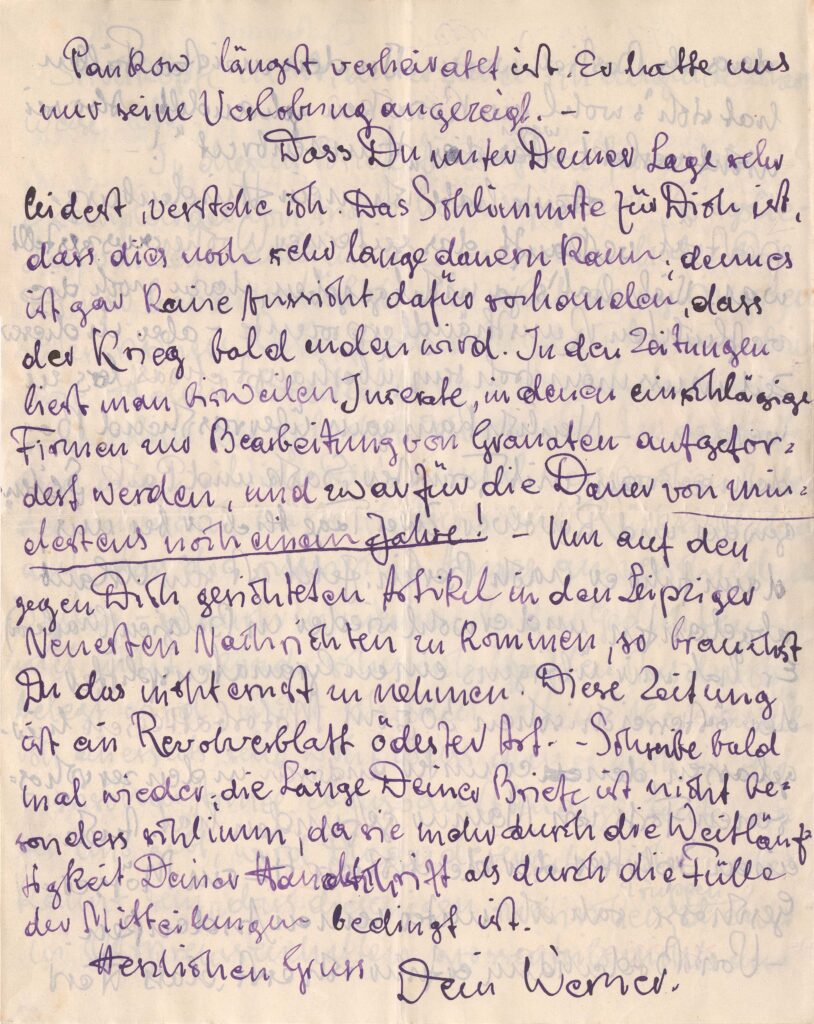 Pankow längst verheiratet ist. Er hatte uns
nur seine Verlobung angezeigt. –
Dass Du unter Deiner Lage sehr
leidest, verstehe ich. Das Schlimmste für Dich ist,
dass dies noch sehr lange dauern kann; denn es
ist gar keine Aussicht dafür vorhanden, dass
der Krieg bald enden wird. In den Zeitungen
liest man bisweilen Inserate, in denen einschlägige
Firmen zur Bearbeitung von Granaten aufgefor=
dert werden, und zwar für die Dauer von min=
destens noch einem Jahre! – Um auf den
gegen Dich gerichteten Artikel in den Leipziger
Neuesten Nachrichten zu kommen, so brauchst
Du das nicht ernst zu nehmen. Diese Zeitung
ist ein Revolverblatt ödester Art. – Schreibe bald
mal wieder; die Länge Deiner Briefe ist nicht be=
sonders schlimm, da sie mehr durch die Weitläuf=
tigkeit Deiner Handschrift als durch die Fülle
der Mitteilungen bedingt ist.
Herzlichen Gruss
Dein Werner.